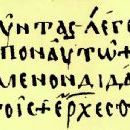 ΟΥΝΤΑΣ ΛΕΓΕ
ΠΟΝ ΑΥΤΩ
ΜΕΝΟΝ ΔΙΔΑ
ΤΟΙΣ ΕΡΧΕΣΘ